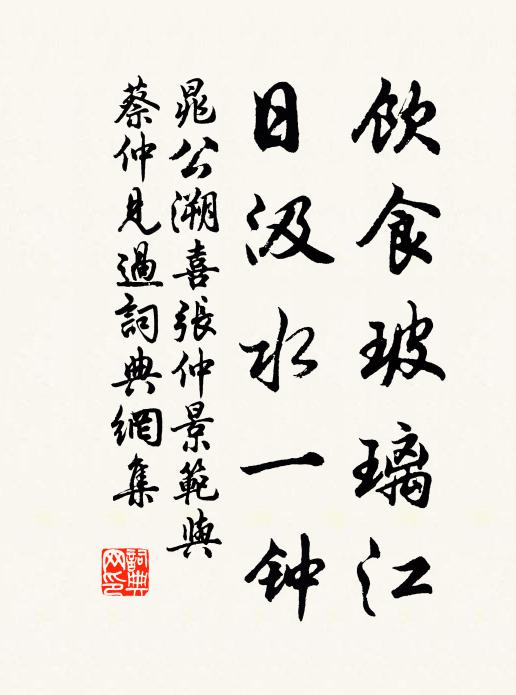 飲食玻璃江
日汲水一钟
晁公溯喜張仲景範與
蔡仲見過詞典網集
詞典网印